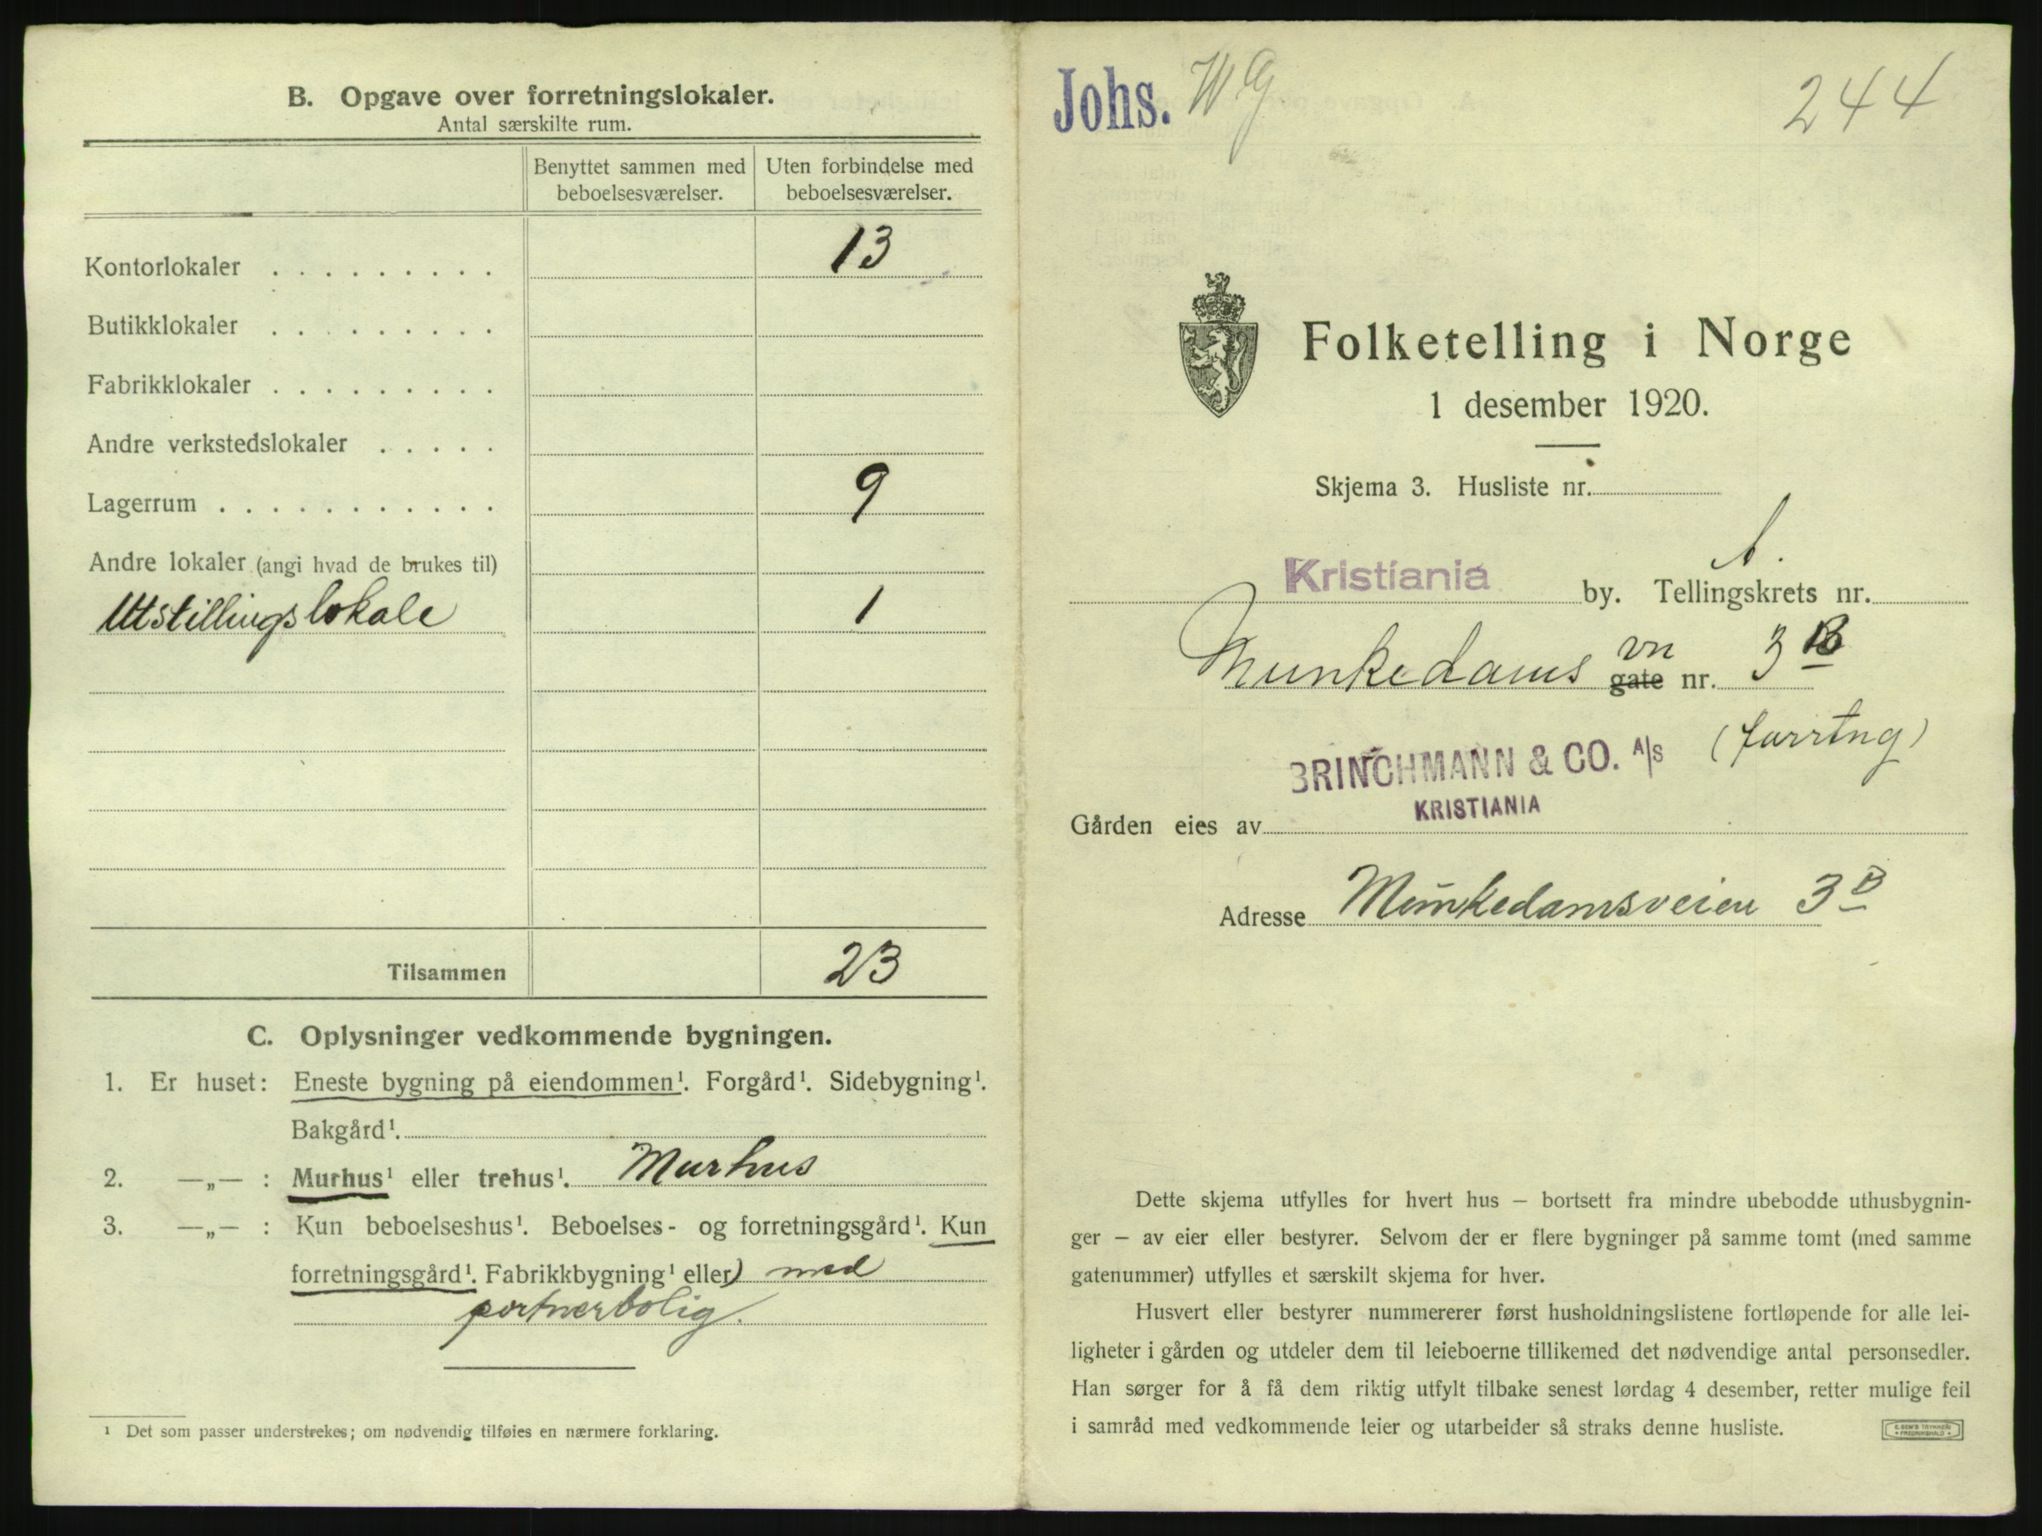 B. Opgave over forretningslokaler.
Antal særskilte rum.
Benyttet sammen med beboelsesværelser.
Uten forbindelse med beboelsesværelser.
Kontorlokaler . . . . . . . . . 13
Butikklokaler . . . . . . . . .
Fabrikklokaler . . . . . . . . .
Andre verkstedslokaler . . . . .
Lagerrum . . . . . . . . . . . 9
Andre lokaler (angi hvad de brukes til)
Utstillingslokale 1
Tilsammen 23
C. Oplysninger vedkommende bygningen.
1. Er huset: Eneste bygning på eiendommen¹. Forgård¹. Sidebygning¹.
Bakgård¹.
2. —„— : Murhus¹ eller trehus¹. Murhus
3. —„— : Kun beboelseshus¹. Beboelses- og forretningsgård¹. Kun
forretningsgård¹. Fabrikkbygning¹ eller) med
portnerbolig.
¹ Det som passer understrekes; om nødvendig tilføies en nærmere forklaring.
Johs. 244
Folketelling i Norge
1 desember 1920.
Skjema 3. Husliste nr.
Kristiania by. Tellingskrets nr. A.
Munkedams gate vn nr. 3 B
(forrtng)
BRINCHMANN & CO. A/S
KRISTIANIA
Gården eies av
Adresse Munkedamsveien 3 B
Dette skjema utfylles for hvert hus – bortsett fra mindre ubebodde uthusbygnin-
ger – av eier eller bestyrer. Selvom der er flere bygninger på samme tomt (med samme
gatenummer) utfylles et særskilt skjema for hver.
Husvert eller bestyrer nummererer først husholdningslistene fortløpende for alle lei-
ligheter i gården og utdeler dem til leieboerne tillikemed det nødvendige antal personsedler.
Han sørger for å få dem riktig utfylt tilbake senest lørdag 4 desember, retter mulige feil
i samråd med vedkommende leier og utarbeider så straks denne husliste.